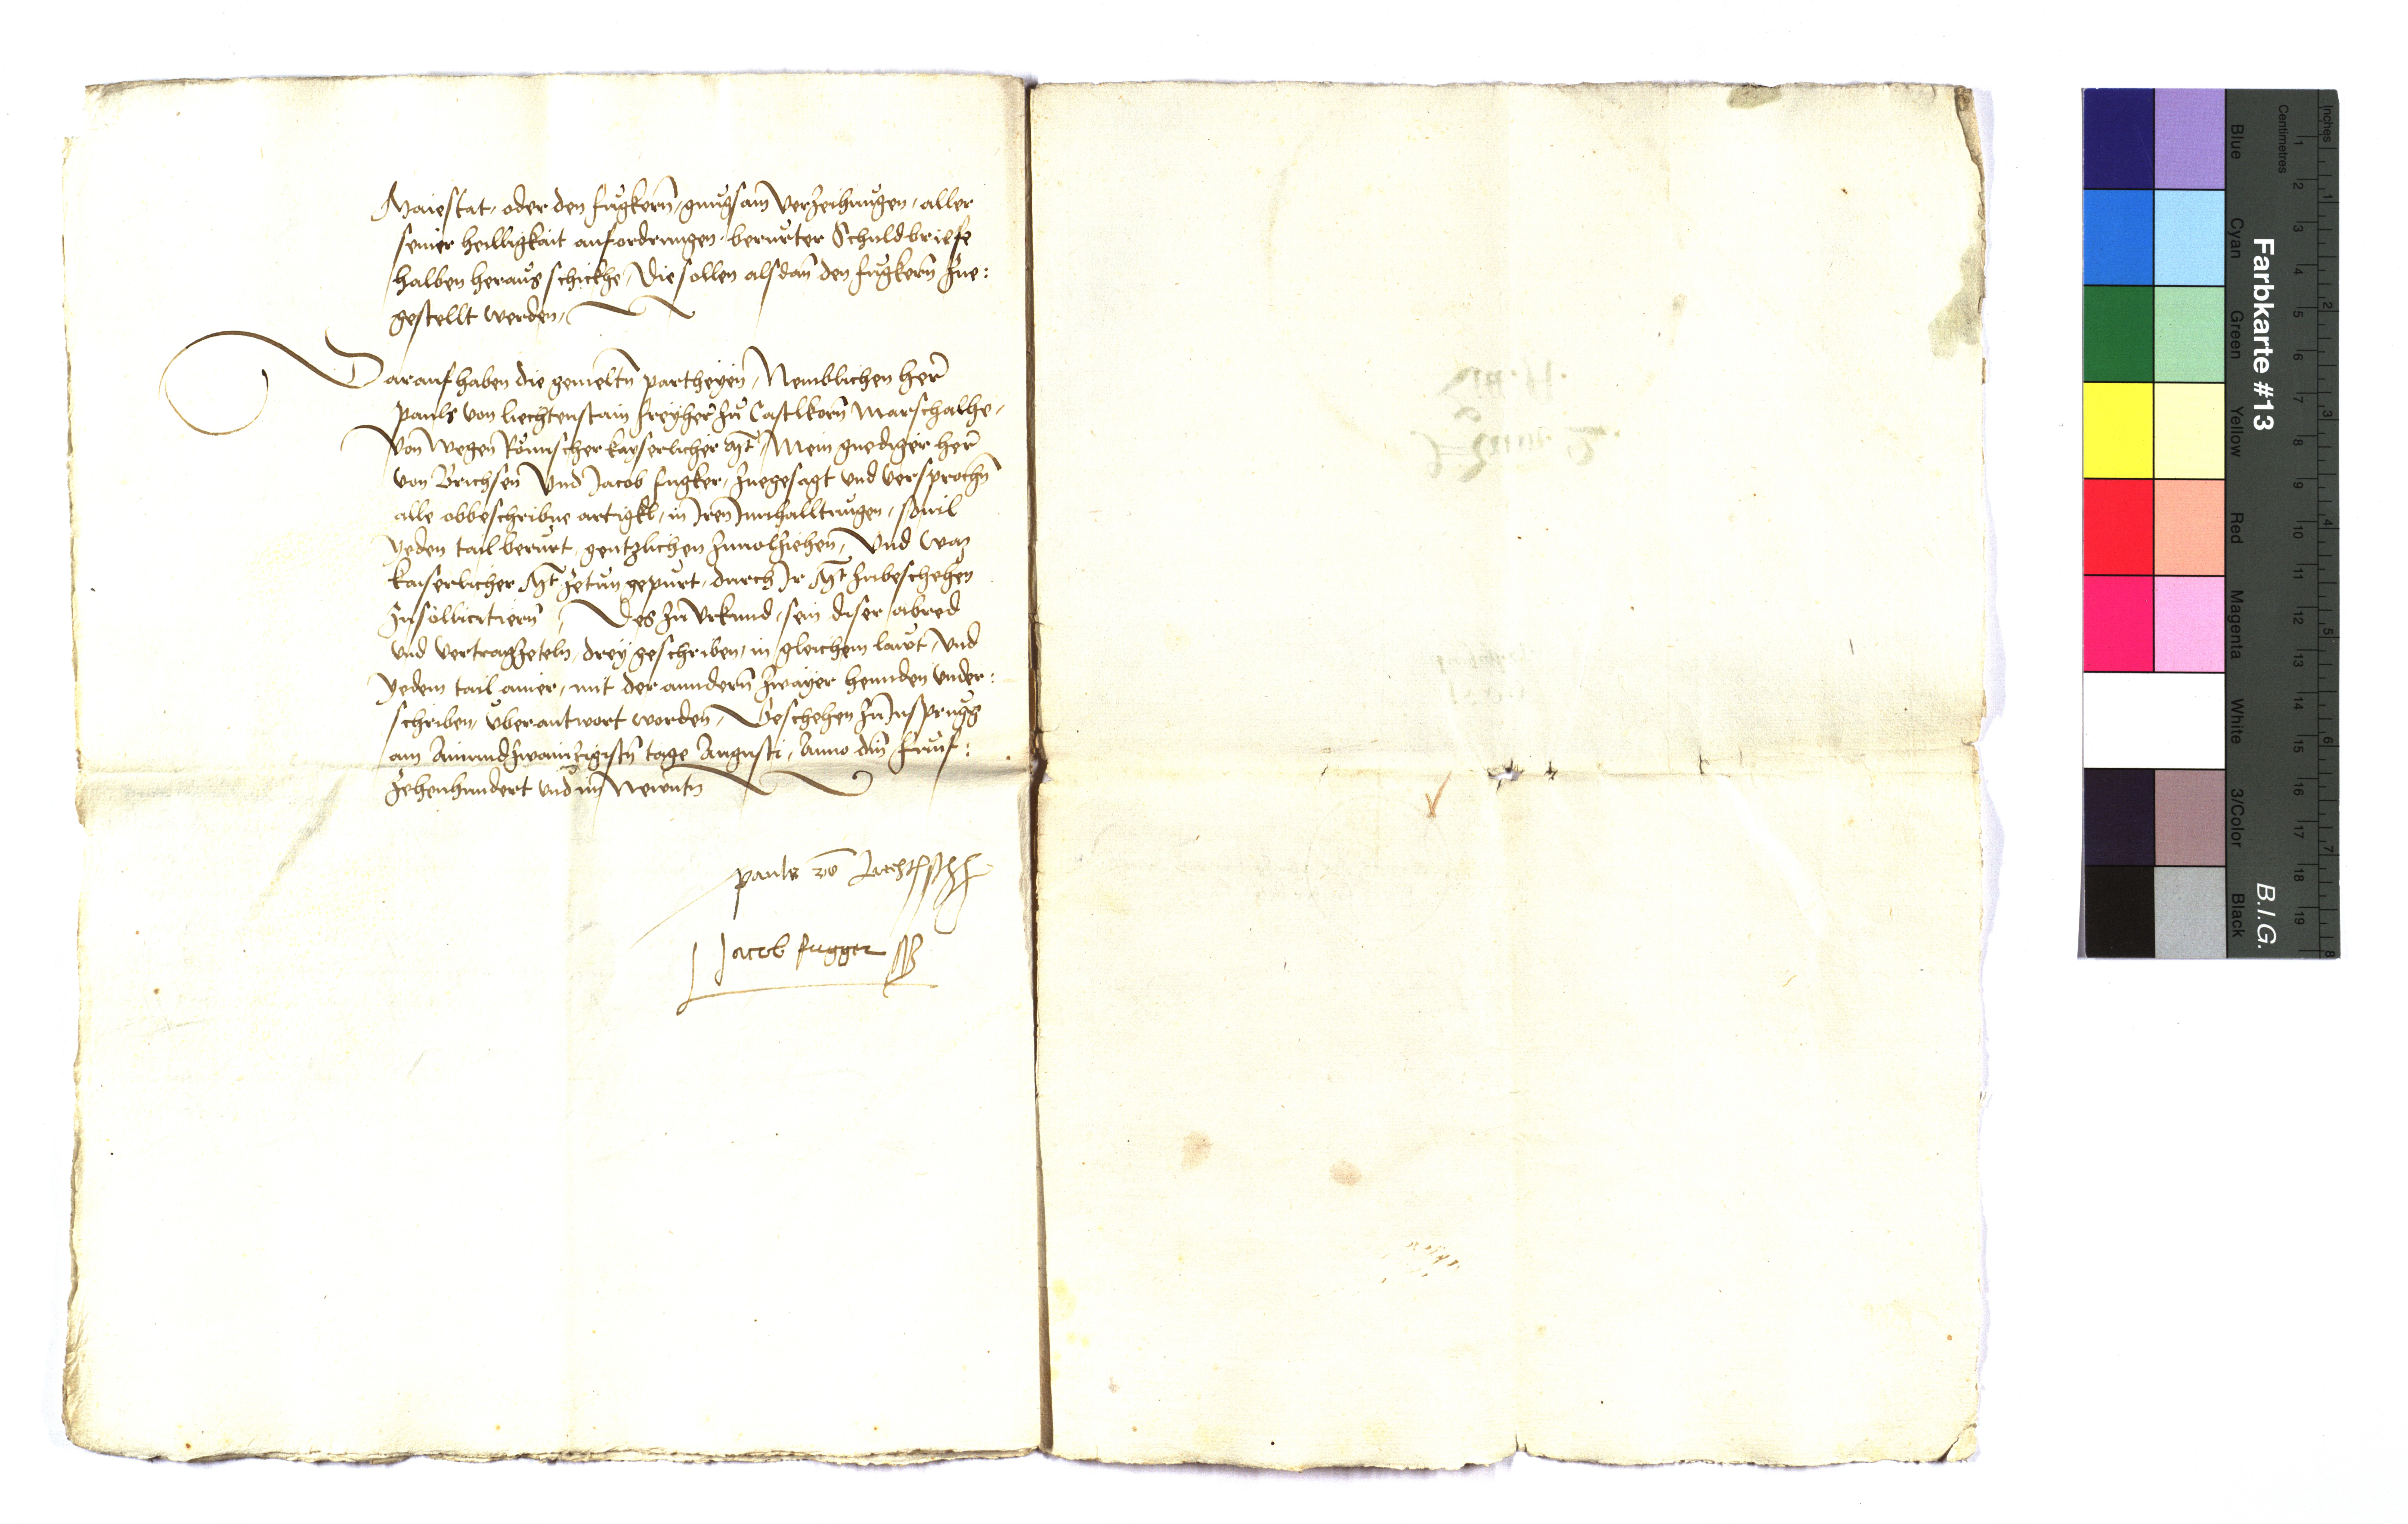 Maiestat, oder den fugkern, gnugsam verzeihungen, aller
seiner heilligkait anfordrungen, berurter Schuldbriefe
halben heraus schickhe, Die sollen alsdan den fugkern Zue:
gestellt werden,
Darauf haben die gemeltn partheyen, Nemblichen her
pauls von liechtenstain freyher zu Castlkorn Marschalhe,
Von wegen Römischer kayserlicher Mt Mein gnediger her
von Brichsen Vnd Jacob fugker, Zuegesagt vnd versprochn
alle obbeschribne artigkl, in Jren Innhalltungen, souil
Yeden tail berurt, gentzlichen Zuuolziehen, Vnd was
kaiserlicher Mt Zetun gepurt, durch Jr Mt Zubeschehen
Zusollicitiern, Des zu Vrkund, sein diser abred
vnd vertragzeteln, drey geschriben, in gleichem laut, Vnd
Yedem tail ainer, mit der anndern zwayer hennden vnder:
schriben, vberantwort worden, Geschehen zu Insprugg
am Ainundzwaintzigistn tage Augusti, Anno dm funf:
Zehenhundert vnd im Newntn
pauls vo Liechtenstein
Jacob fugger
Farbkarte #13
B.I.G.
Inches
Centimetres
1 2 3 4 5 6 7 8 9 10 11 12 13 14 15 16 17 18 19
1 2 3 4 5 6 7 8
Blue Cyan Green Yellow Red Magenta White 3/Color Black